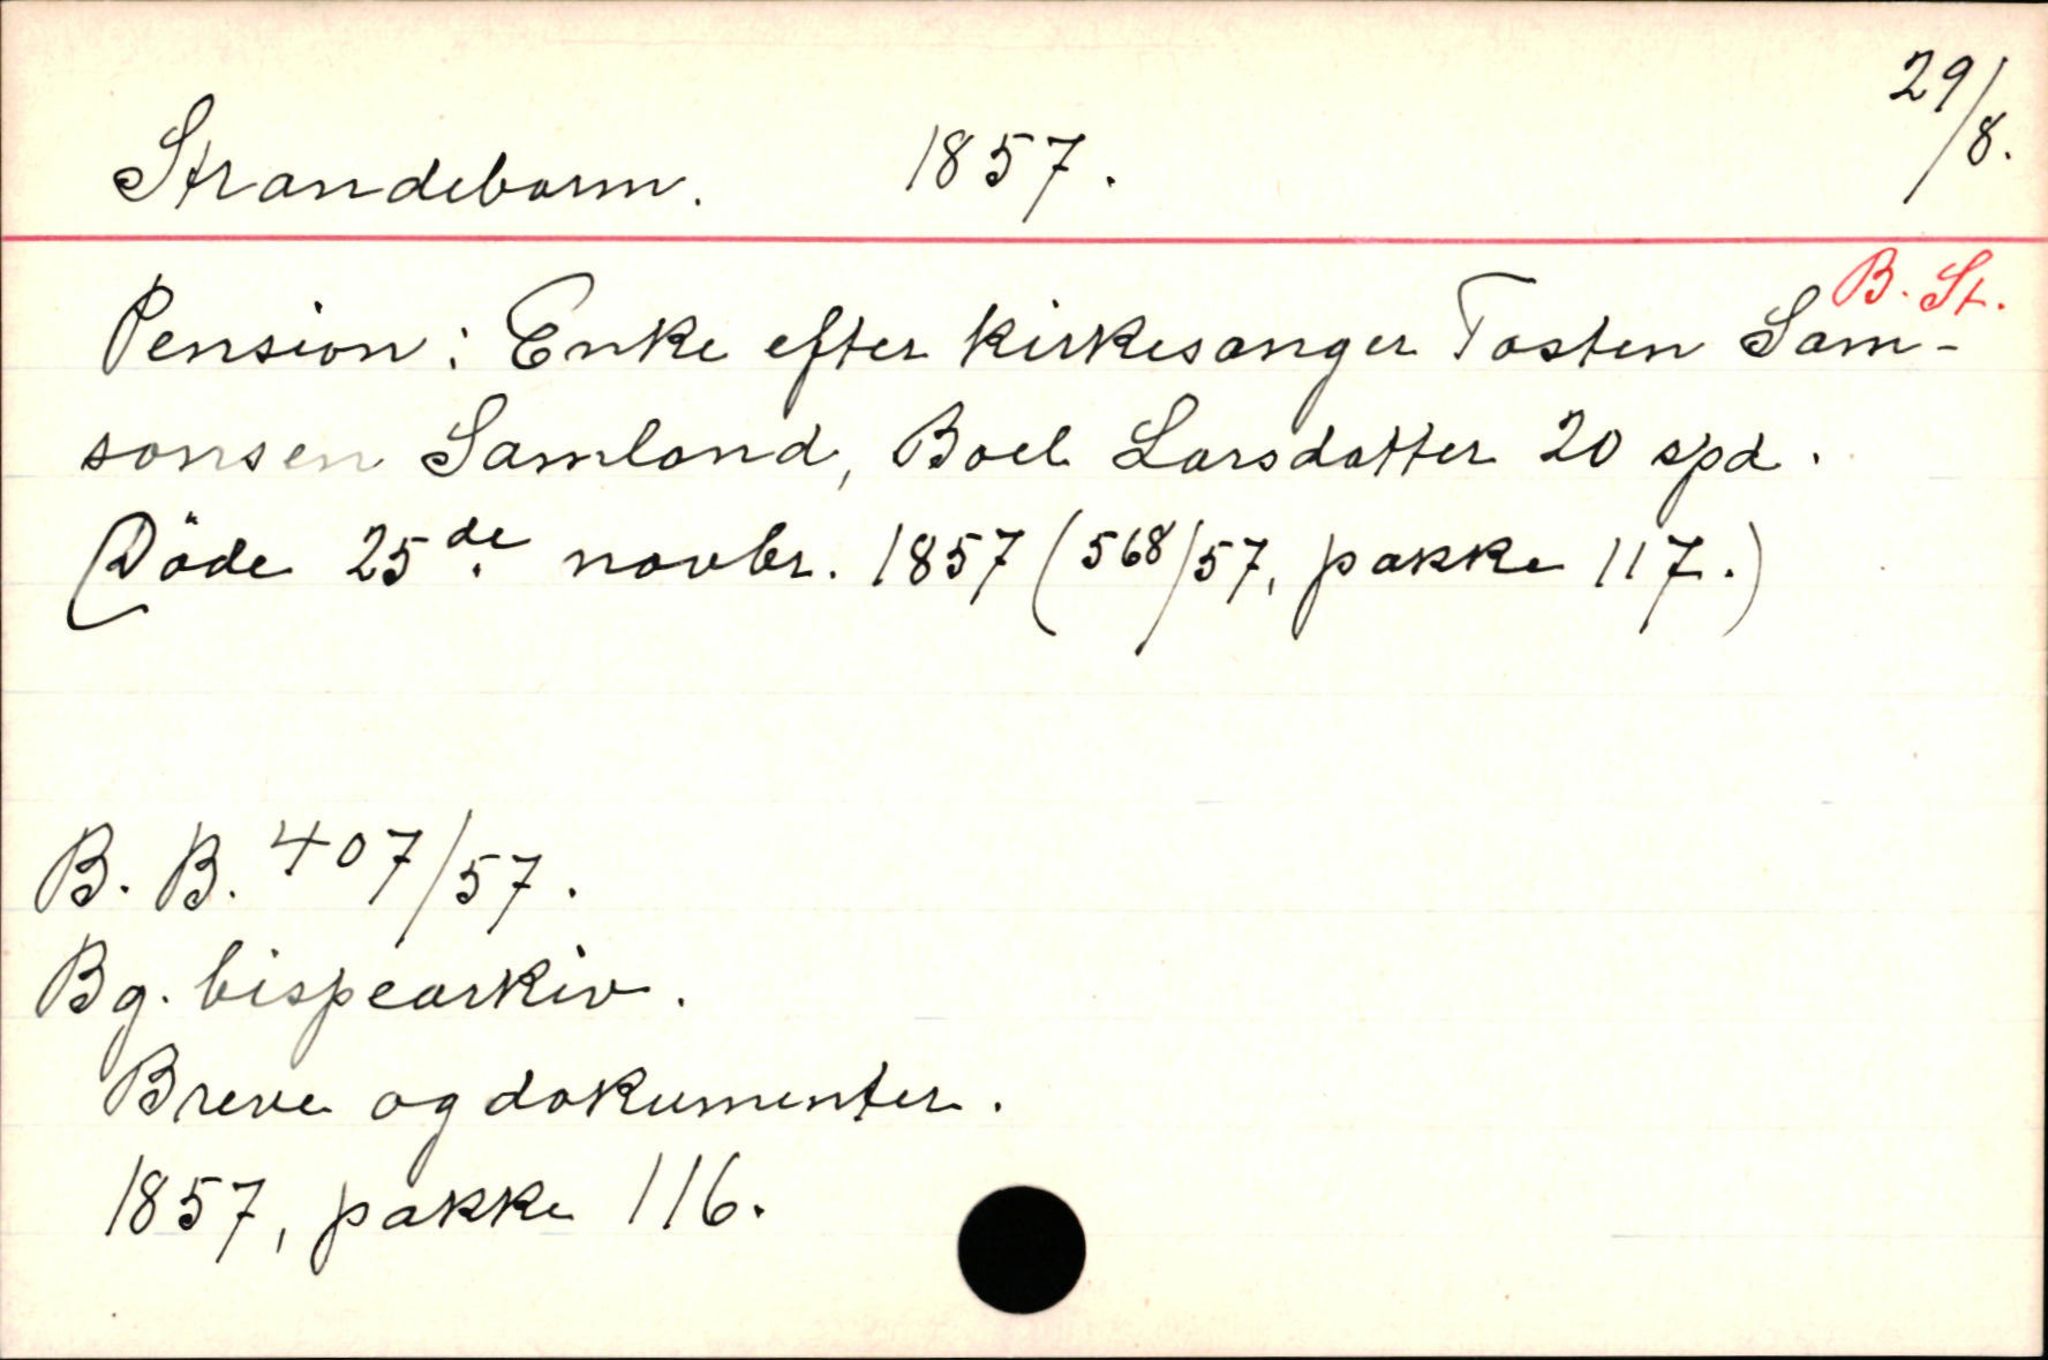 Strandebarm. 1857. 29/8.
B. St.
Pension: Enke efter kirkesanger Tosten Sam-
sonsen Samland, Boel Larsdatter 20 spd.
(Döde 25de novbr. 1857 (568/57, pakke 117.)
B. B. 407/57.
Bg. bispearkiv.
Breve og dokumenter.
1857, pakke 116.